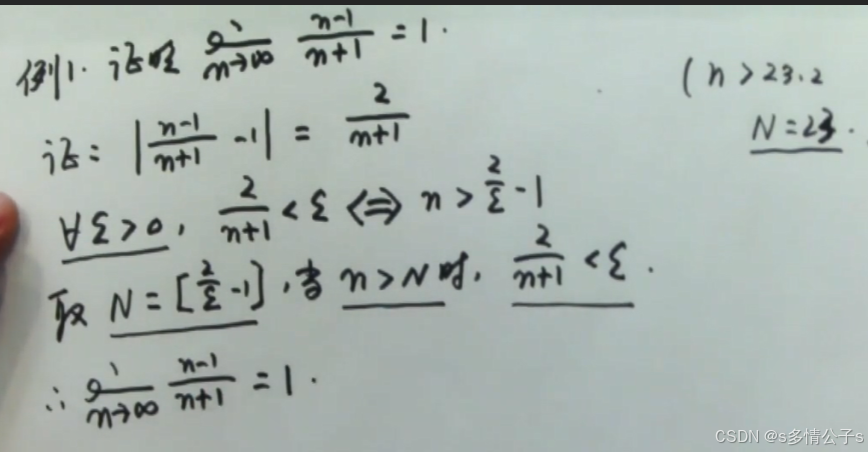 例1. 证明 lim n→∞ (n-1)/(n+1) = 1.
(n > 23.2
N = 23.
证: |(n-1)/(n+1) - 1| = 2/(n+1)
∀ε>0, 2/(n+1) < ε ⟺ n > 2/ε - 1
取 N = [2/ε - 1], 当 n>N 时, 2/(n+1) < ε.
∴ lim n→∞ (n-1)/(n+1) = 1.
CSDN @s多情公子s